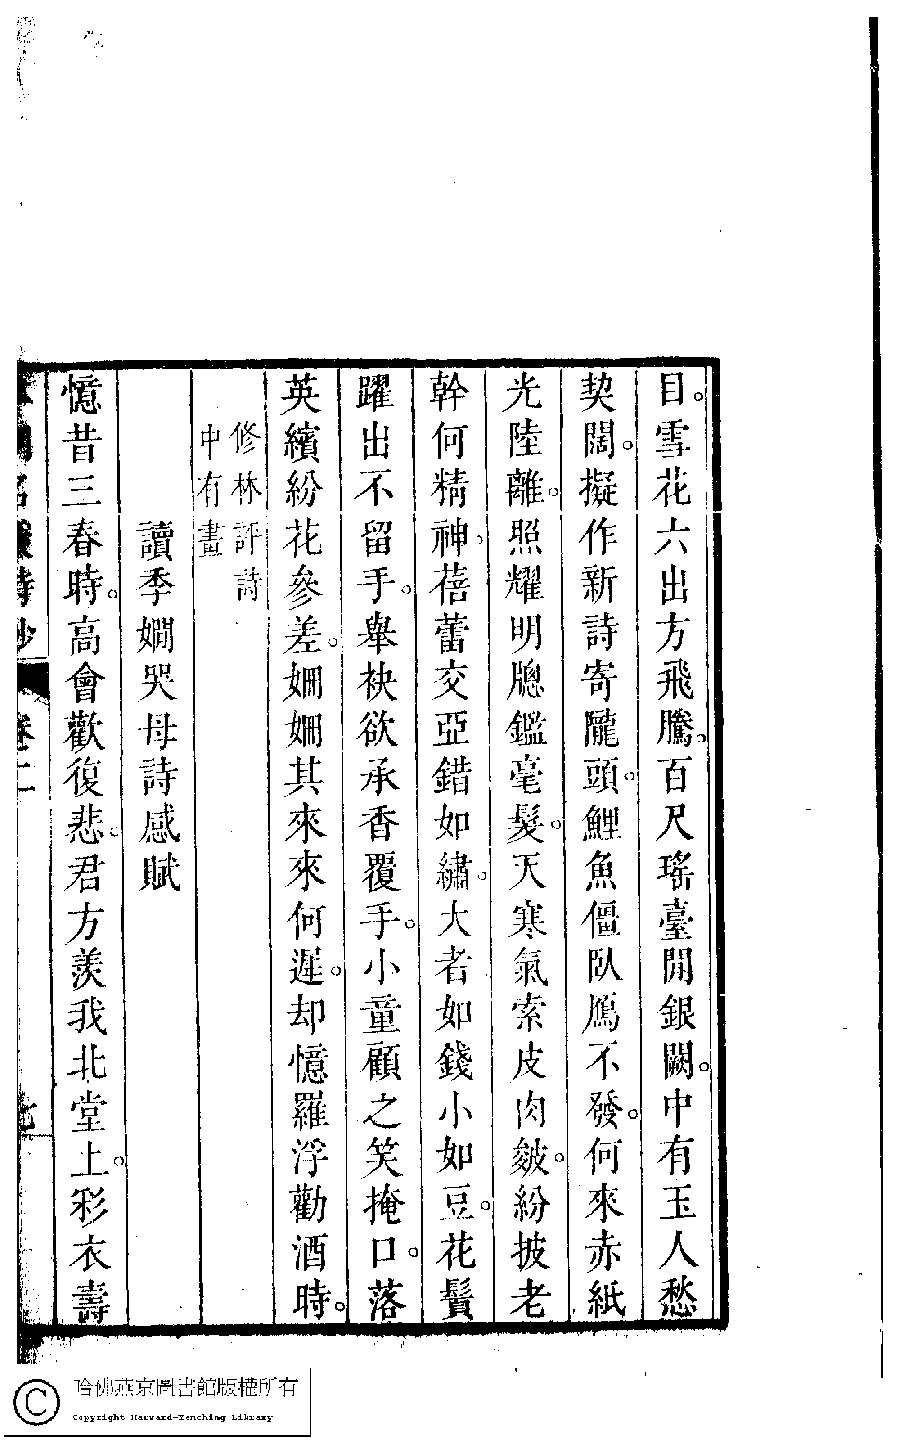 目。雪花六出方飛騰。百尺瑤臺開銀闕。中有玉人愁
契闊。擬作新詩寄隴頭。鯉魚僵臥鴈不發。何來赤紙
光陸離。照耀明牕鑑毫髮。天寒氣索皮肉皴。紛披老
幹何精神。蓓蕾交亞錯如繡。大者如錢小如豆。花鬚
躍出不留手。舉袂欲承香覆手。小童顧之笑掩口。落
英繽紛花參差。姍姍其來來何遲。却憶羅浮勸酒時。
修林評詩
中有畫
讀季嫺哭母詩感賦
憶昔三春時。高會歡復悲。君方羨我北堂上。彩衣壽
名媛詩鈔
卷二
哈佛燕京圖書館版權所有
Copyright Harvard-Yenching Library